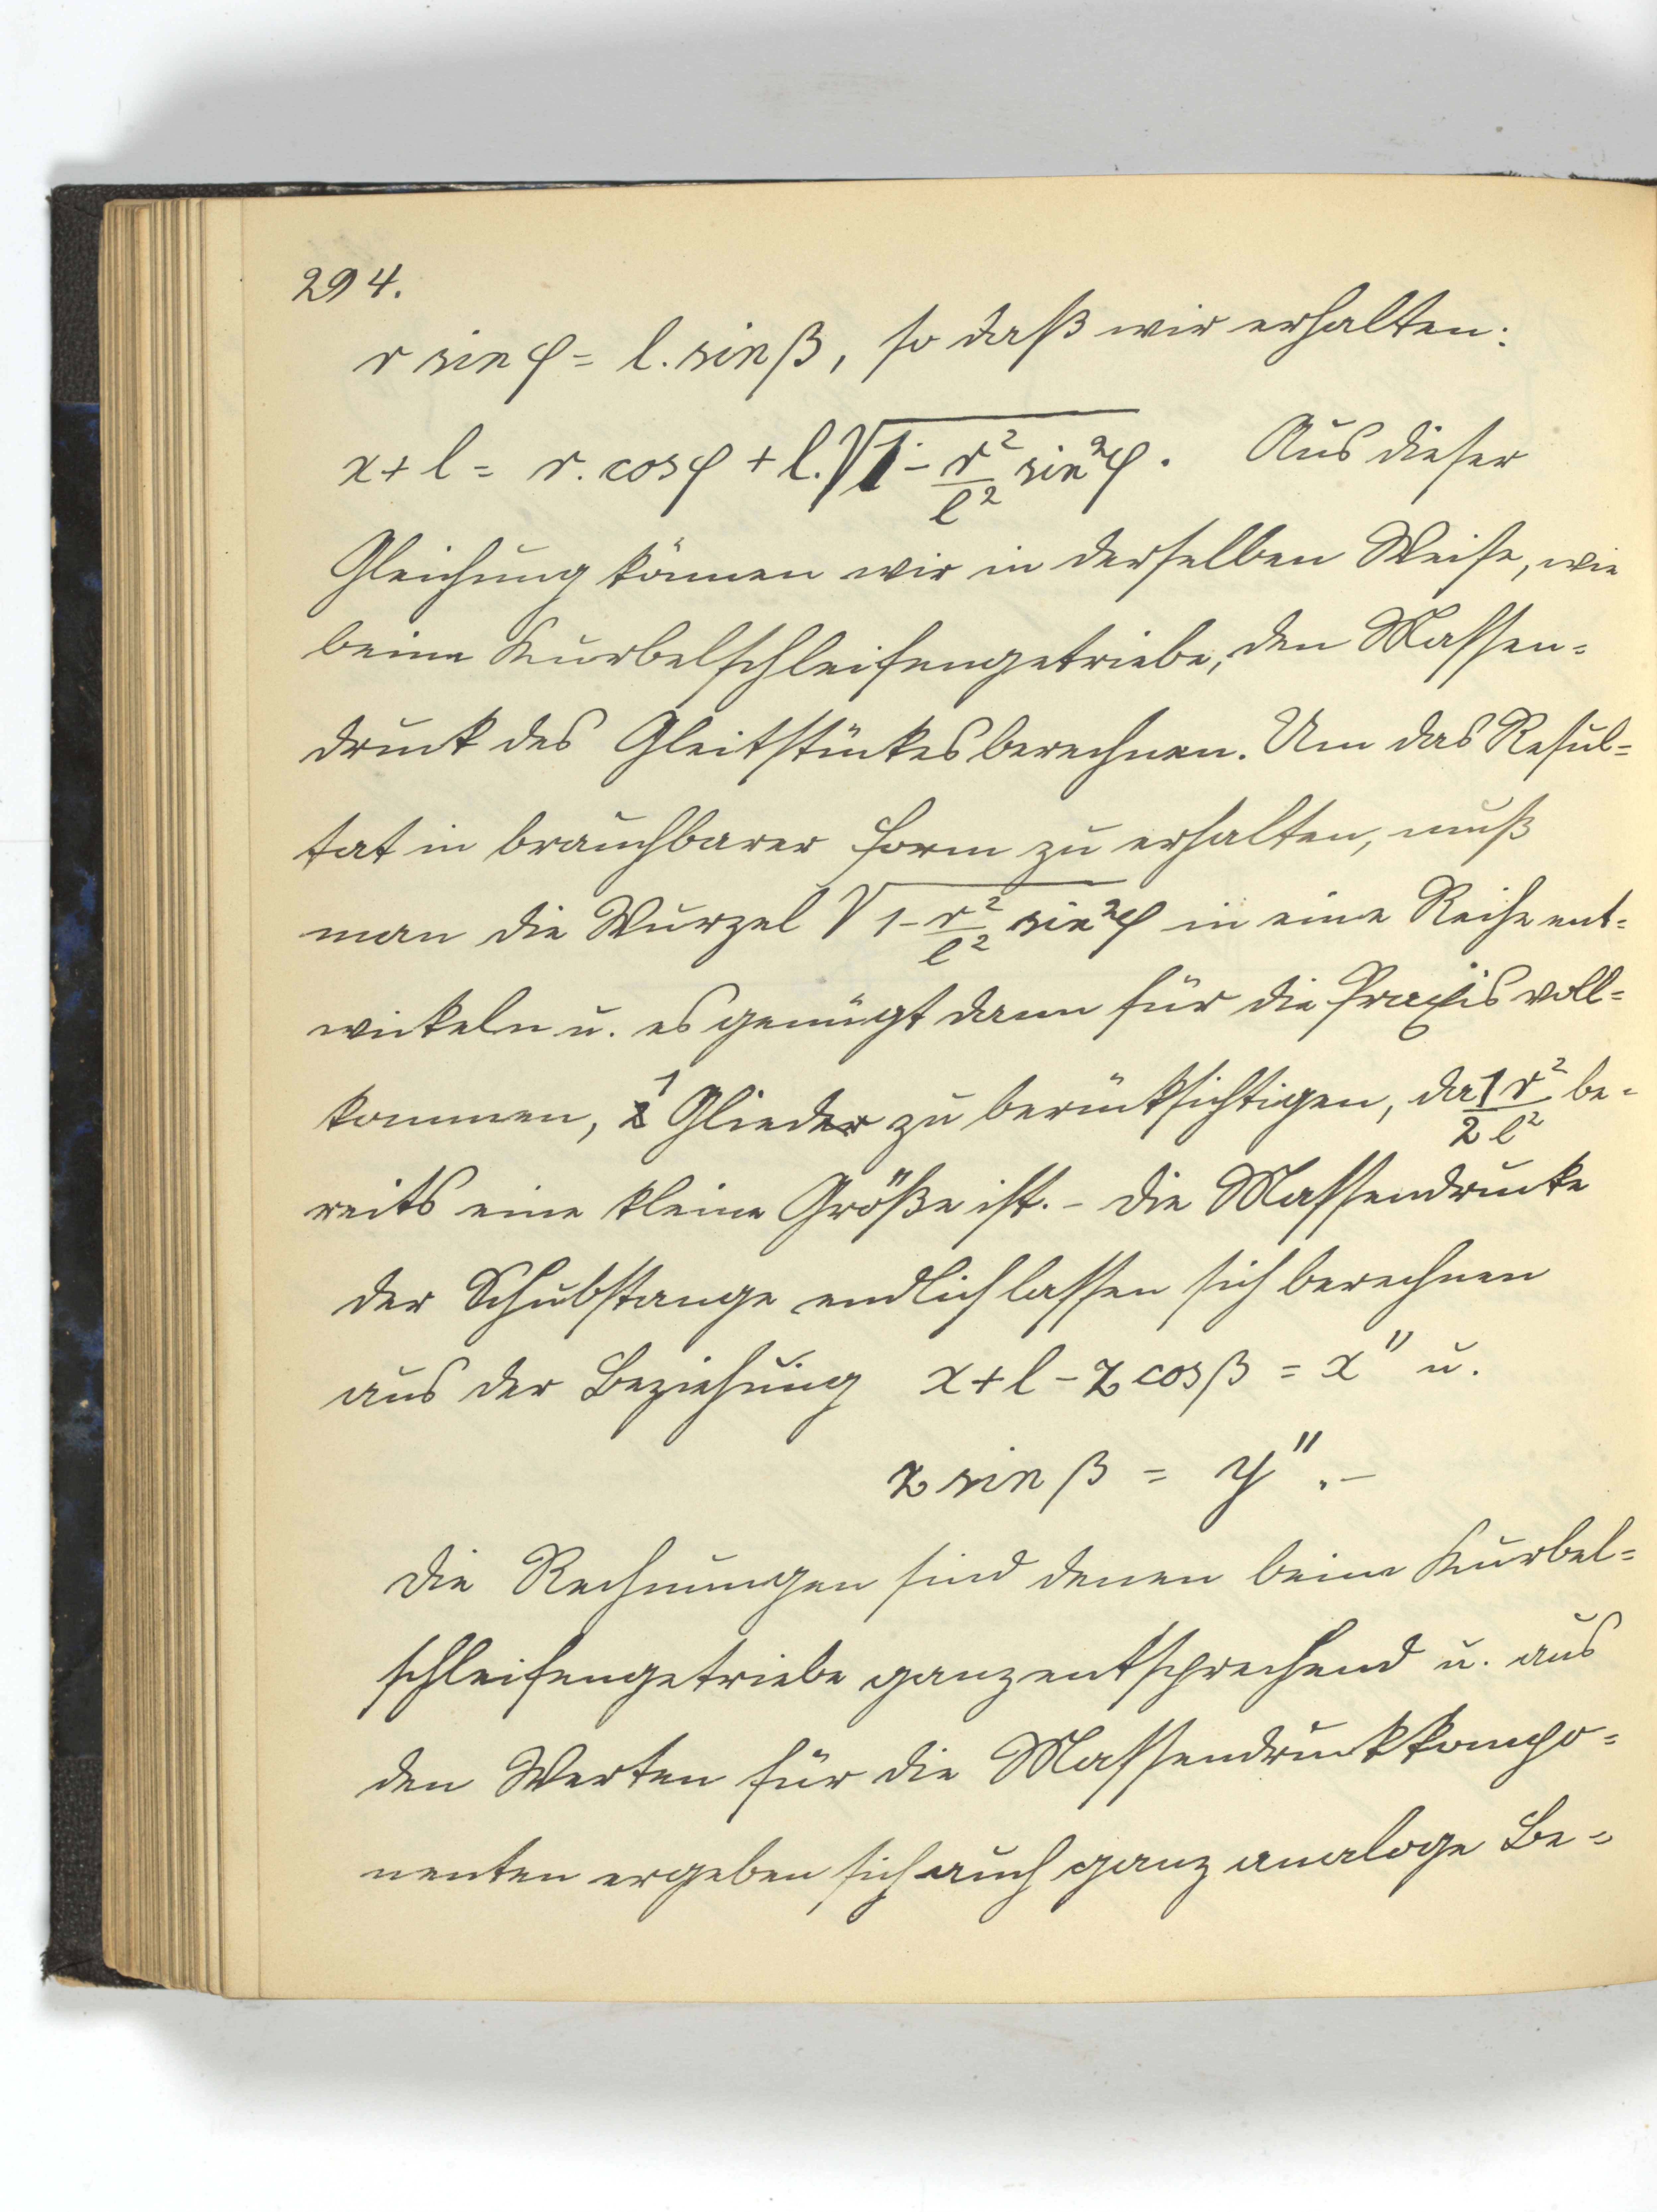 294.
r sin φ = l. sin β, so daß wir erhalten:
x + l = r. cos φ + l. √1 - r²/l² sin² φ. Aus dieser
Gleichung können wir in derselben Weise, wie
beim Kurbelschleifengetriebe, den Massen=
druck des Gleitstückes berechnen. Um das Resul=
tat in brauchbarer Form zu erhalten, muß
man die Wurzel √1 - r²/l² sin² φ in eine Reihe ent=
wickeln u. es genügt dann für die Praxis voll=
kommen, 1 Glied zu berücksichtigen, da 1/2 r²/l² be-
reits eine kleine Größe ist. - Die Massendrucke
der Schubstange endlich lassen sich berechnen
aus der Beziehung x + l - z cos β = x" u.
z sin β = y". -
Die Rechnungen sind denen beim Kurbel=
schleifengetriebe ganz entsprechend u. aus
den Werten für die Massendruckkompo=
nenten ergeben sich auch ganz analoge Be=